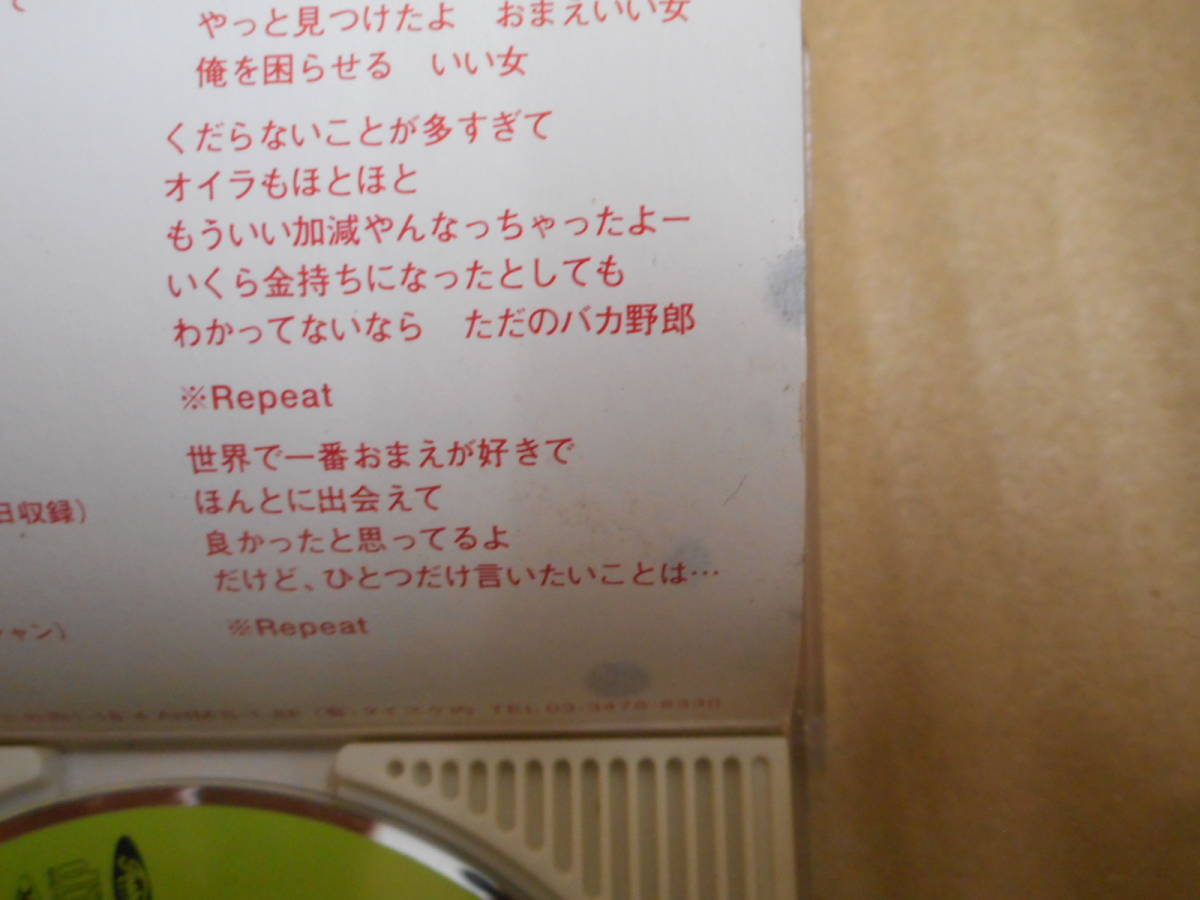 て
やっと見つけたよ　おまえいい女
俺を困らせる　いい女
くだらないことが多すぎて
オイラもほとほと
もういい加減やんなっちゃったよー
いくら金持ちになったとしても
わかってないなら　ただのバカ野郎
※Repeat
世界で一番おまえが好きで
ほんとに出会えて
良かったと思ってるよ
日収録）
だけど、ひとつだけ言いたいことは…
ャン）
※Repeat